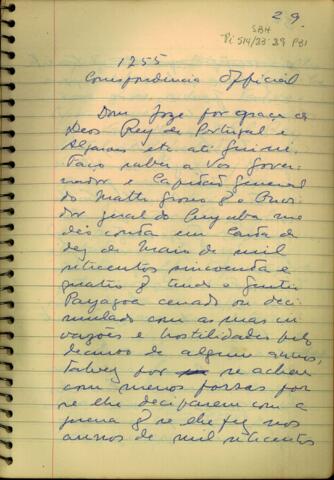 29.
SBH
Pi 514/23:29 P81
1755
Correspondencia Official
Dom Joze por graça de
Deos Rey de Portugal e
Algarves etc até Guiné
Faço saber a vós Gover-
nador e Capitão General
do Matto Grosso q̃ o Ouvi-
dor geral do Cuyaba me
deo conta em carta de
dez de Maio de mil
setecentos sincoenta e
quatro q̃ tendo o gentio
Payagoa cessado ou
com as mas in-
vazões e hostilidades pelo
decurso de alguns annos,
talvez por se achar
com menos forsas por
se lhe desiparem com a
guerra q̃ se lhe fez nos
annos de mil setecentos